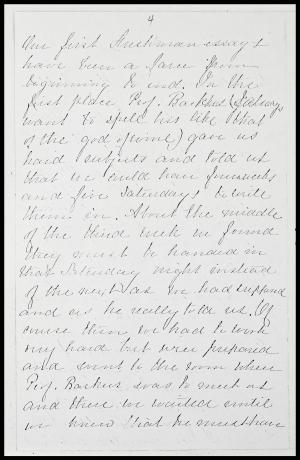 4
Our first Freshman essays
have been a farce from
beginning to end. In the
first place, Prof. Backus (I always
want to spell his like that
of the god of wine) gave us
hard subjects and told us
that we could have four weeks
and five Saturdays to write
them in. About the middle
of the third week we found
they must be handed in
that Saturday night instead
of the next as we had supposed
and as he really told us. Of
course then we had to work
very hard but were prepared
and went to the room where
Prof. Backus was to meet us
and there we waited until
we knew that he must have